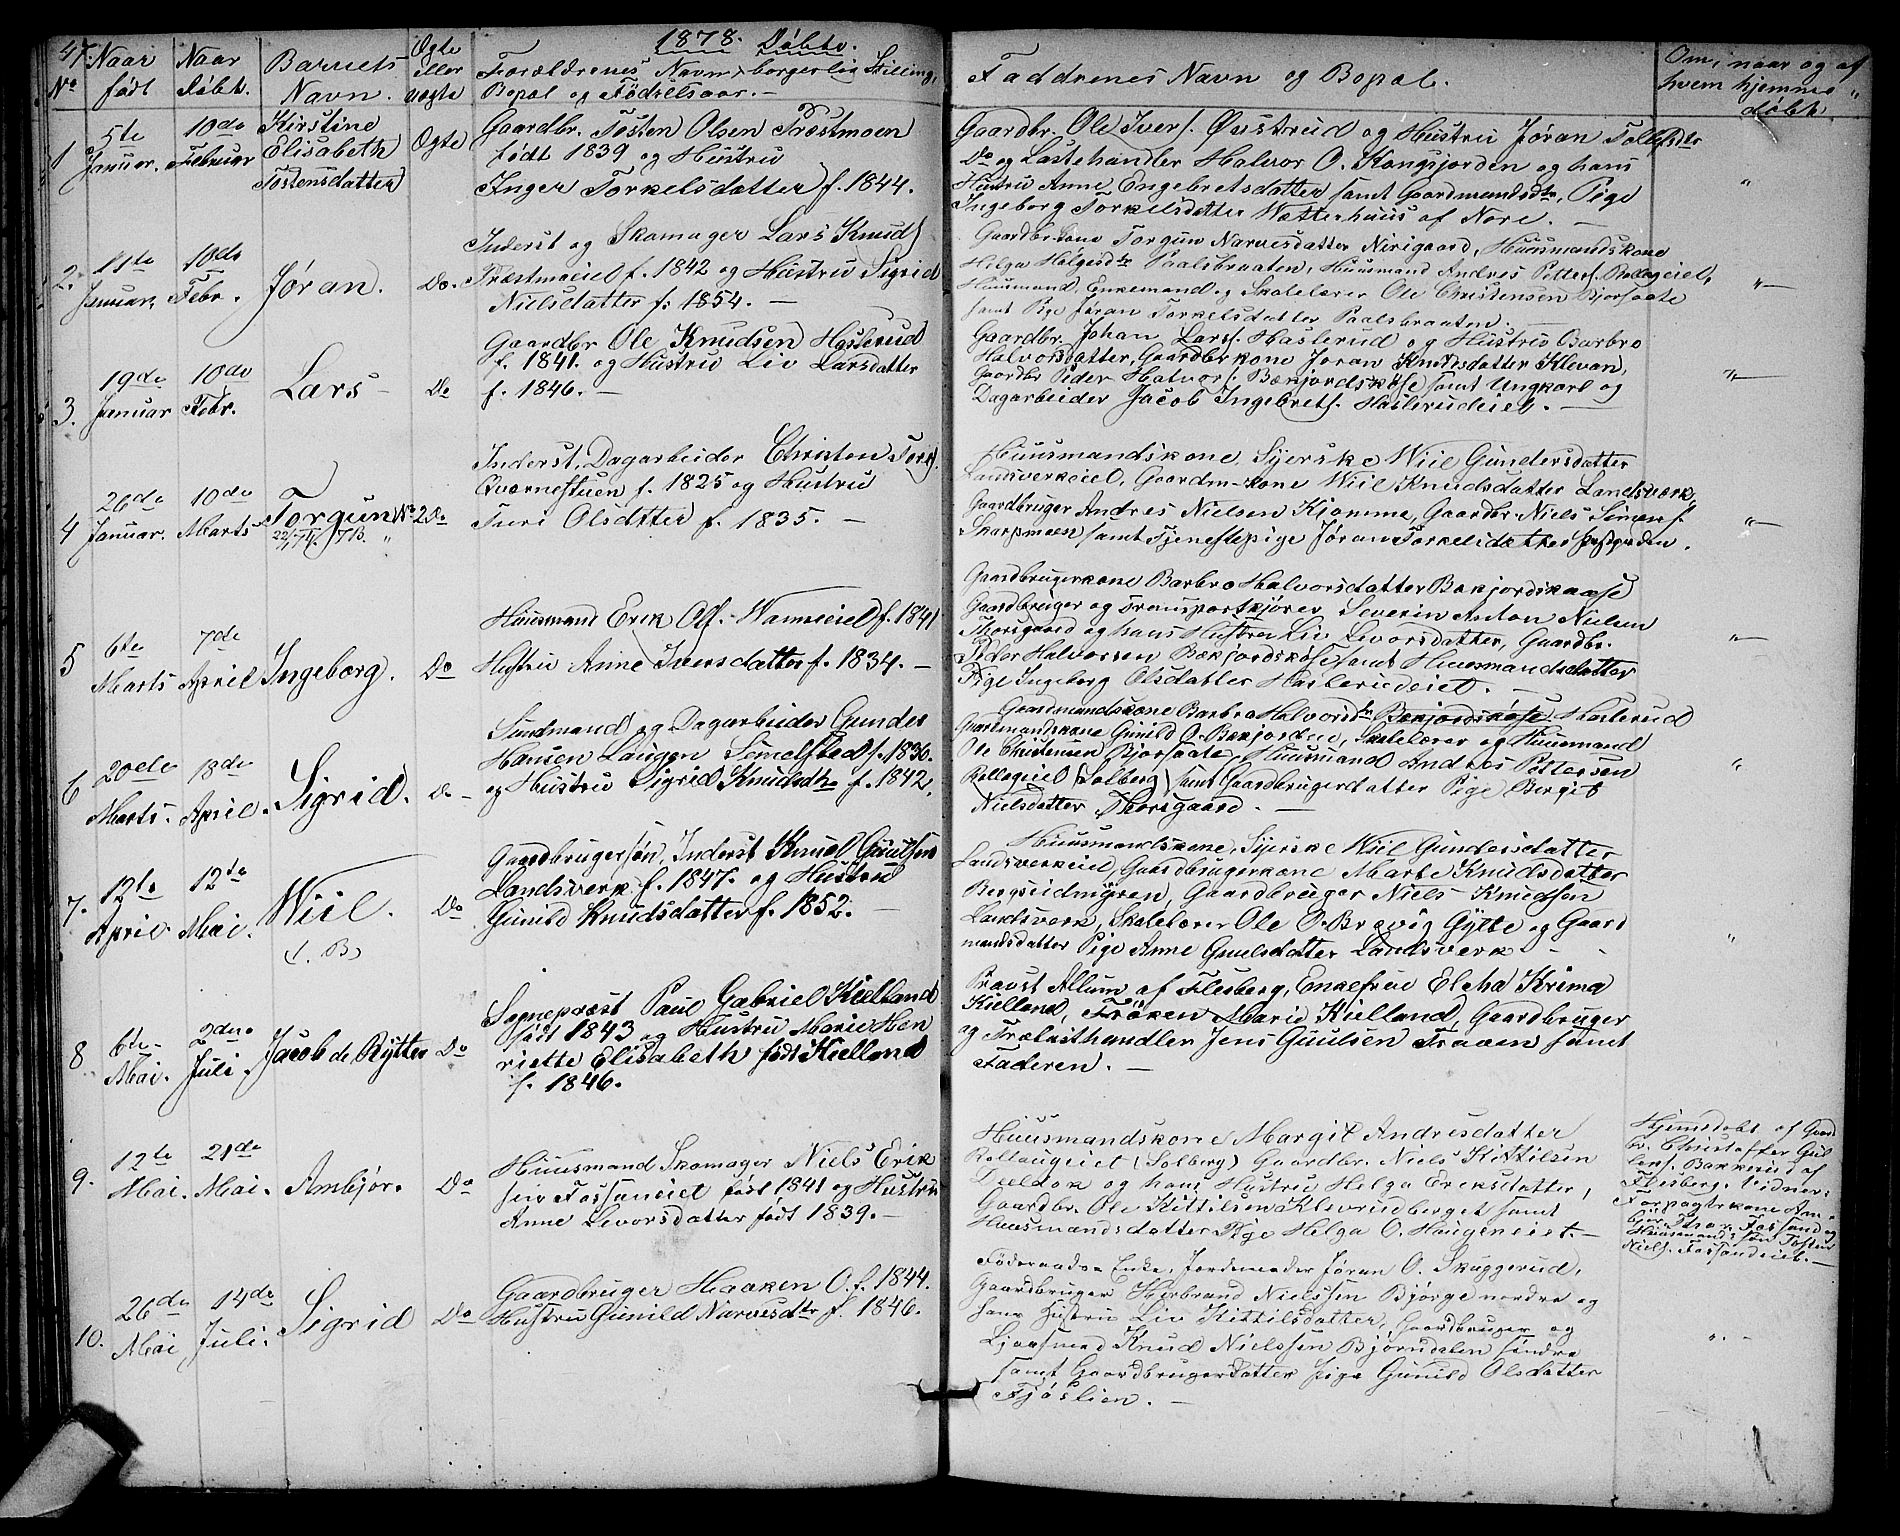 47. 1878. Døbte.
No
Naar født
Naar Døbt.
Barnets Navn.
Ægte eller uægte
Forældrenes Navn, borgerlig Stilling,
Bopæl og Fødselsaar. —
Faddrenes Navn og Bopæl.
Om, naar og af
hvem hjemme
døbt.
1
5te Januar.
10de Februar
Kirstine
Elisabeth
Tostensdatter
Ægte
Gaardbr. Tosten Olsen Præstmoen
født 1839 og Hustru
Inger Torkelsdatter f. 1844.
Gaardbr. Ole Ivers. Øvstrud og Hustru Jøran Tollefsdtr
Do og Lastehandler Halvor O. Kongsjorden og hans
Hustru Anne Engebretsdatter samt Gaardmandsdtr, Pige
Ingeborg Torkelsdatter Wætterhuus af Nore. —
"
2.
11te Januar.
10de Febr.
Jøran.
Do.
Inderst og Skomager Lars Knuds.
Præstmoeiel f. 1842 og Hustru Sigrid
Nielsdatter f. 1854. —
Gaardbr.kone Torgun Narvesdatter Nirigaard, Huusmandskone
Helga Helgesdtr Paalsbraaten, Huusmand Andres Petters. Rollegeiel,
Huusmand, Enkemand og Skolelærer Ole Christensen Bjorsaate
samt Pige Jøran Torkelsdatter Paalsbraaten. —
"—
3.
19de Januar
10de Febr.
Lars —
Do
Gaardbr Ole Knudsen Haslerud
f. 1841. og Hustru Liv Larsdatter
f. 1846. —
Gaardbr. Johan Lars. Haslerud og Hustru Barbro
Halvorsdatter, Gaardbr.kone Jøran Knudsdatter Klevan,
Gaardbr Peder Halvors. Bækjordskøse samt Ungkarl og
Dagarbeider Jacob Ingebrets. Haslerudeiet. —
"—
4
26de Januar.
10de Marts
Torgun No 2
22/7 74. 713. "
Do
Inderst, Dagarbeider Christen Tork.
Qvernestuen f. 1825 og Hustru
Turi Olsdatter f. 1835. —
Huusmandskone, Syerske Wiil Gundersdatter
Landsverkeiel, Gaardm-kone Wiil Knudsdatter Landsverk,
Gaardbruger Andres Nielsen Kjomme, Gaardbr. Niels Simens.
Skarpmoen samt Tjenestepige Jøran Torkelsdatter
"—
5
6te Marts
7de April
Ingeborg.
Do
Huusmand Erik Ols. Wanneiel f. 1841
Hustru Anne Iversdatter f. 1834. —
Gaardbrugerkone Barbro Halvorsdatter Bækjordskaase
Gaardbruger og Transportkjører Severin Anton Nielsen
Thorsgaard og hans Hustru Liv Levorsdatter, Gaardbr.
Peder Halvorsen Bækjordskøse samt Huusmandsdatter
Pige Ingeborg Olsdatter Haslerudeiet. —
"—
6
20de Marts.
18de April.
Sigrid.
Do —
Sundmand og Dagarbeider Gunder
Hansen Laugen Semelsted f. 1830.
og Hustru Sigrid Knudsdtr f. 1842.
Gaardmandskone Barbro Halvorsdtr Bækjordskøse Haslerud
Gaardmandskone Gunild O. Bækjorden, Skolelærer og Huusmand
Ole Christensen Bjorsaate, Huusmand Andres Pettersen
Rollegeiel (Solberg) samt Gaardbrugerdatter Pige Bergit
Nielsdatter Thorsgaard. —
"
7.
12te April.
12te Mai.
Wiil.
(1. B)
Do
Gaardbrugersøn, Inderst Knud Guulsen
Landsverk f. 1847. og Hustru
Gunild Knudsdatter f. 1852. —
Huusmandskone, Syerske Wiil Gundersdatter
Landsverkeiel, Gaardbrugerkone Marte Knudsdatter
Bergseidmyren, Gaardbruger Niels Knudsen
Landsverk, Skolelærer Ole O. Bravig Gytte og Gaard
mandsdatter Pige Anne Guulsdatter Landsverk —
"
8
6te Mai.
2den Juli.
Jacob de Rytter
Do
Sognepræst Paul Gabriel Kielland
født 1843 og Hustru Marie Hen
riette Elisabeth født Kielland
f. 1846.
Pravst Allum af Flesberg, Enkefrue Elcha Krima
Kielland, Frøken Marie Kielland, Gaardbruger
og Trælasthandler Jens Guulsen Traaen samt
Faderen. —
9.
12te Mai.
21de Mai.
Ambjør.
Do
Huusmand Skomager Niels Erik
sen Fossaneiet født 1841 og Hustru
Anne Levorsdatter født 1839. —
Huusmandskone Margit Andresdatter
Rollaugeiet (Solberg) Gaardbr. Niels Kittilsen
og hans Hustru Helga Eriksdatter,
Gaardbr. Ole Kittilsen Klevrudberget samt
Huusmandsdatter Pige Helga O. Haugeneiet. —
Hjemdøbt af Gaard
br. Christoffer Gul
lens. Bakkerud af
Flesberg. Vidner:
Forpagterkone Am-
bjør Thor. Fossand og
Huusmands Søn Tosten
Niels. Fossandeiet. —
10.
26de Mai
14de Juli.
Sigrid
Do
Gaardbruger Haaken O. f. 1844.
Hustru Gunild Narvesdtr f. 1846.
Føderaads-Enke, Jordemoder Jøran O. Skuggerud,
Gaardbruger Herbrand Nielssen Bjørge nordre og
hans Hustru Liv Kittilsdatter, Gaardbruger og
Lensmand Knud Nielssen Bjørndalen søndre
samt Gaardbrugerdatter Pige Gunild Olsdatter
Fjøslien. —
" —